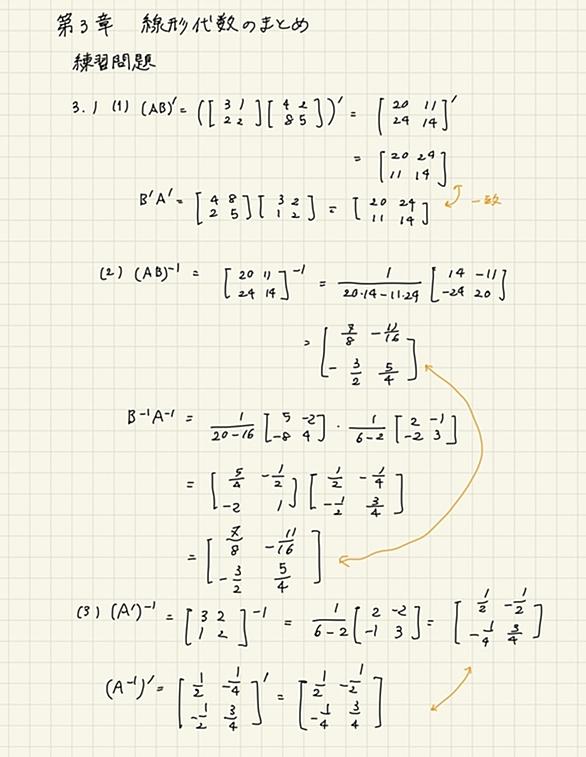 第3章 線形代数のまとめ
練習問題
3.1 (1) (AB)' = ([3 1; 2 2][4 2; 8 5])' = [20 11; 24 14]'
= [20 24; 11 14]
B'A' = [4 8; 2 5][3 2; 1 2] = [20 24; 11 14] 一致
(2) (AB)⁻¹ = [20 11; 24 14]⁻¹ = 1/(20·14-11·24) [14 -11; -24 20]
= [7/8 -11/16; -3/2 5/4]
B⁻¹A⁻¹ = 1/(20-16) [5 -2; -8 4] · 1/(6-2) [2 -1; -2 3]
= [5/4 -1/2; -2 1][1/2 -1/4; -1/2 3/4]
= [7/8 -11/16; -3/2 5/4]
(3) (A')⁻¹ = [3 2; 1 2]⁻¹ = 1/(6-2) [2 -2; -1 3] = [1/2 -1/2; -1/4 3/4]
(A⁻¹)' = [1/2 -1/4; -1/2 3/4]' = [1/2 -1/2; -1/4 3/4]